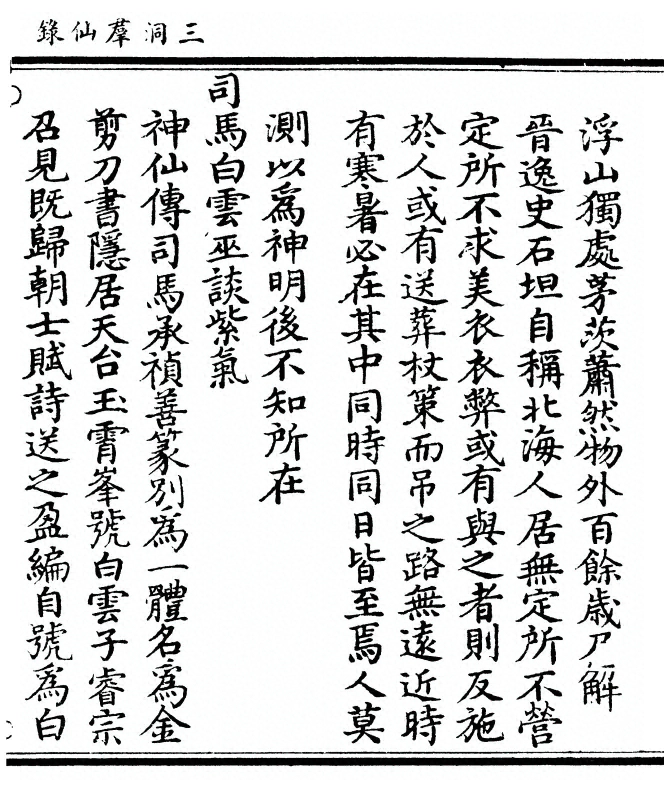 三洞羣仙錄
浮山獨處茅茨蕭然物外百餘歲尸解
晉逸史石坦自稱北海人居無定所不營
定所不求美衣衣弊或有與之者則反施
於人或有送葬杖策而吊之路無遠近時
有寒暑必在其中同時同日皆至焉人莫
測以爲神明後不知所在
司馬白雲巫談紫氣
神仙傳司馬承禎善篆別爲一體名爲金
剪刀書隱居天台玉霄峯號白雲子睿宗
召見既歸朝士賦詩送之盈編自號爲白